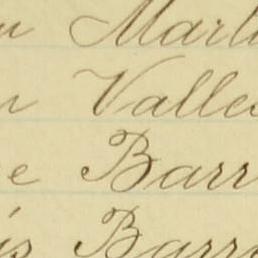 n Marti
n Valles
e Barr
is Barr